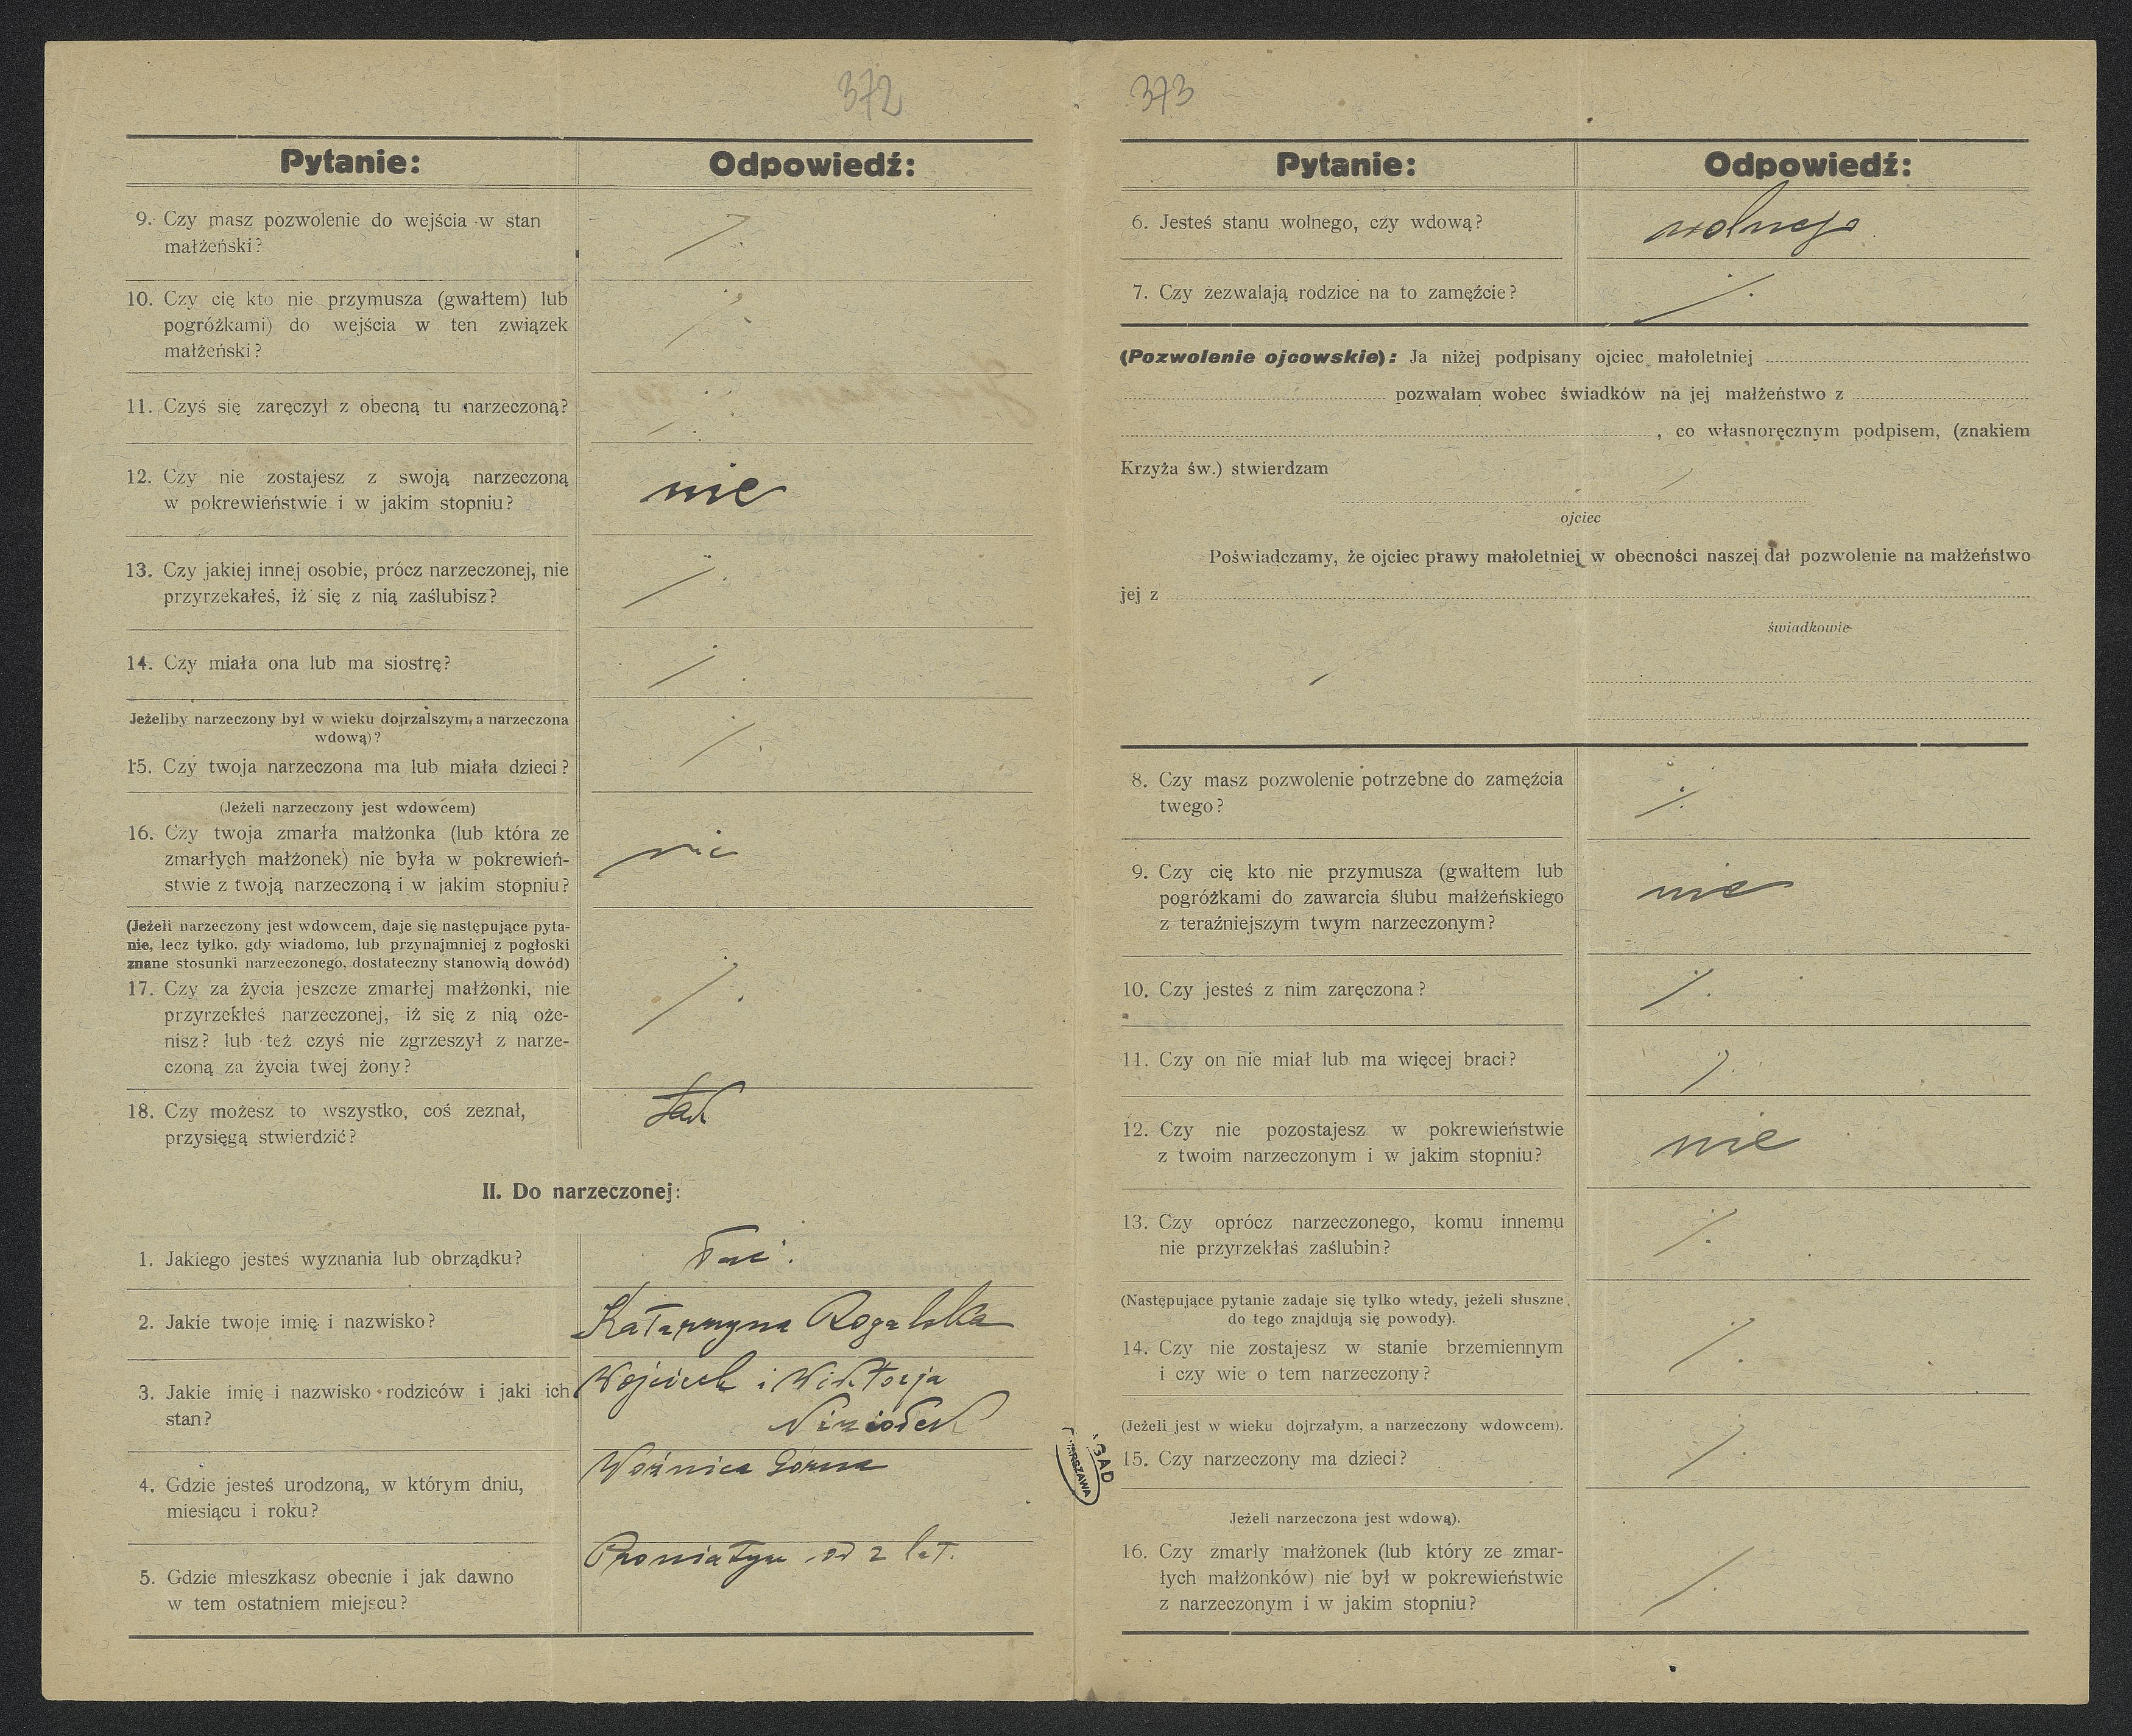 372
Pytanie: Odpowiedź:
9. Czy masz pozwolenie do wejścia w stan
małżeński?
10. Czy cię kto nie przymusza (gwałtem) lub
pogróżkami) do wejścia w ten związek
małżeński?
11. Czyś się zaręczył z obecną tu narzeczoną?
12. Czy nie zostajesz z swoją narzeczoną
w pokrewieństwie i w jakim stopniu?
nie
13. Czy jakiej innej osobie, prócz narzeczonej, nie
przyrzekałeś, iż się z nią zaślubisz?
14. Czy miała ona lub ma siostrę?
Jeżeliby narzeczony był w wieku dojrzalszym, a narzeczona
wdową)?
15. Czy twoja narzeczona ma lub miała dzieci?
(Jeżeli narzeczony jest wdowcem)
16. Czy twoja zmarła małżonka (lub która ze
zmarłych małżonek) nie była w pokrewień-
stwie z twoją narzeczoną i w jakim stopniu?
nie
(Jeżeli narzeczony jest wdowcem, daje się następujące pyta-
nie, lecz tylko, gdy wiadomo, lub przynajmniej z pogłoski
znane stosunki narzeczonego, dostateczny stanowią dowód)
17. Czy za życia jeszcze zmarłej małżonki, nie
przyrzekłeś narzeczonej, iż się z nią oże-
nisz? lub też czyś nie zgrzeszył z narze-
czoną za życia twej żony?
18. Czy możesz to wszystko, coś zeznał,
przysięgą stwierdzić?
tak
II. Do narzeczonej:
1. Jakiego jesteś wyznania lub obrządku?
2. Jakie twoje imię i nazwisko?
Katarzyna Rogalska
3. Jakie imię i nazwisko rodziców i jaki ich
stan?
Wojciech i Wiktorja
Niziołek
4. Gdzie jesteś urodzoną, w którym dniu,
miesiącu i roku?
Woźnica Górna
5. Gdzie mieszkasz obecnie i jak dawno
w tem ostatniem miejscu?
Proniatyn od 2 lat.
AGAD
WARSZAWA
373
Pytanie: Odpowiedź:
6. Jesteś stanu wolnego, czy wdową?
wolnego
7. Czy zezwalają rodzice na to zamęźcie?
(Pozwolenie ojcowskie): Ja niżej podpisany ojciec małoletniej
pozwalam wobec świadków na jej małżeństwo z
, co własnoręcznym podpisem, (znakiem
Krzyża św.) stwierdzam
ojciec
Poświadczamy, że ojciec prawy małoletniej w obecności naszej dał pozwolenie na małżeństwo
jej z
świadkowie
8. Czy masz pozwolenie potrzebne do zamęźcia
twego?
9. Czy cię kto nie przymusza (gwałtem lub
pogróżkami do zawarcia ślubu małżeńskiego
z teraźniejszym twym narzeczonym?
nie
10. Czy jesteś z nim zaręczona?
11. Czy on nie miał lub ma więcej braci?
12. Czy nie pozostajesz w pokrewieństwie
z twoim narzeczonym i w jakim stopniu?
nie
13. Czy oprócz narzeczonego, komu innemu
nie przyrzekłaś zaślubin?
(Następujące pytanie zadaje się tylko wtedy, jeżeli słuszne
do tego znajdują się powody).
14. Czy nie zostajesz w stanie brzemiennym
i czy wie o tem narzeczony?
(Jeżeli jest w wieku dojrzałym, a narzeczony wdowcem).
15. Czy narzeczony ma dzieci?
Jeżeli narzeczona jest wdową).
16. Czy zmarły małżonek (lub który ze zmar-
łych małżonków) nie był w pokrewieństwie
z narzeczonym i w jakim stopniu?